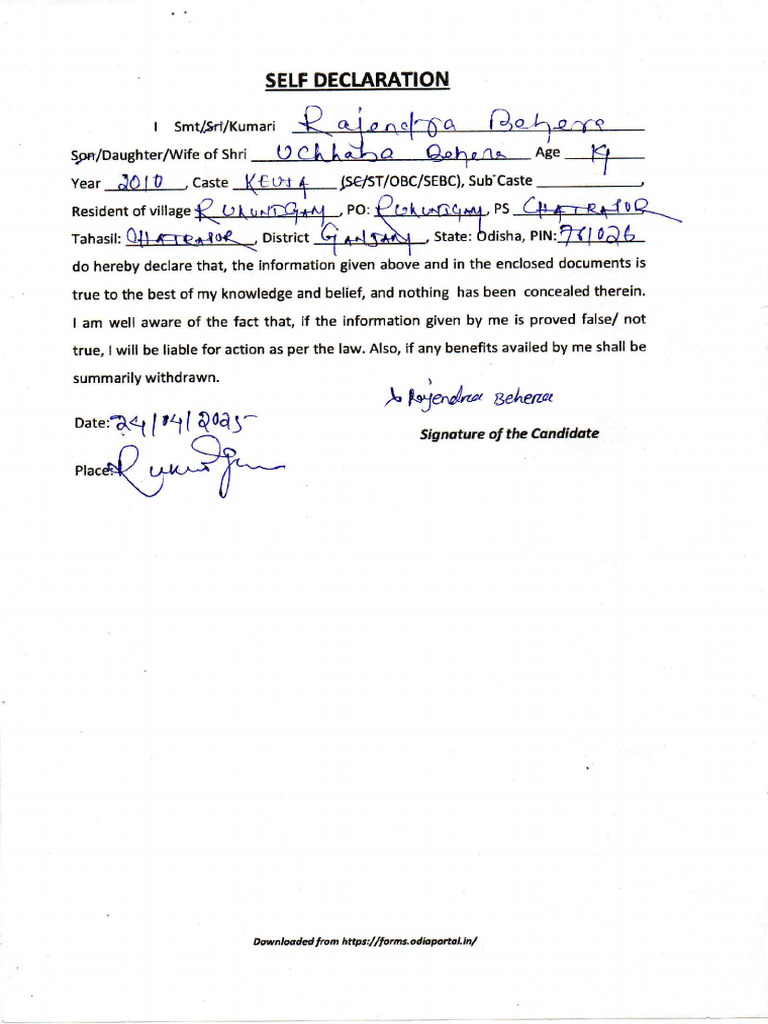 SELF DECLARATION
I Smt/Sri/Kumari Rajendra Behera
Son/Daughter/Wife of Shri Uchhaba Behera Age 19
Year 2010, Caste KEUTA (SC/ST/OBC/SEBC), Sub Caste ,
Resident of village RUKUNIGAM, PO: RUKUNIGAM, PS CHATRAPUR
Tahasil: CHATRAPUR, District GANJAM, State: Odisha, PIN: 761026
do hereby declare that, the information given above and in the enclosed documents is
true to the best of my knowledge and belief, and nothing has been concealed therein.
I am well aware of the fact that, if the information given by me is proved false/ not
true, I will be liable for action as per the law. Also, if any benefits availed by me shall be
summarily withdrawn.
Rajendra Behera
Date: 24/04/2025
Signature of the Candidate
Place:
Downloaded from https://forms.odiaportal.in/